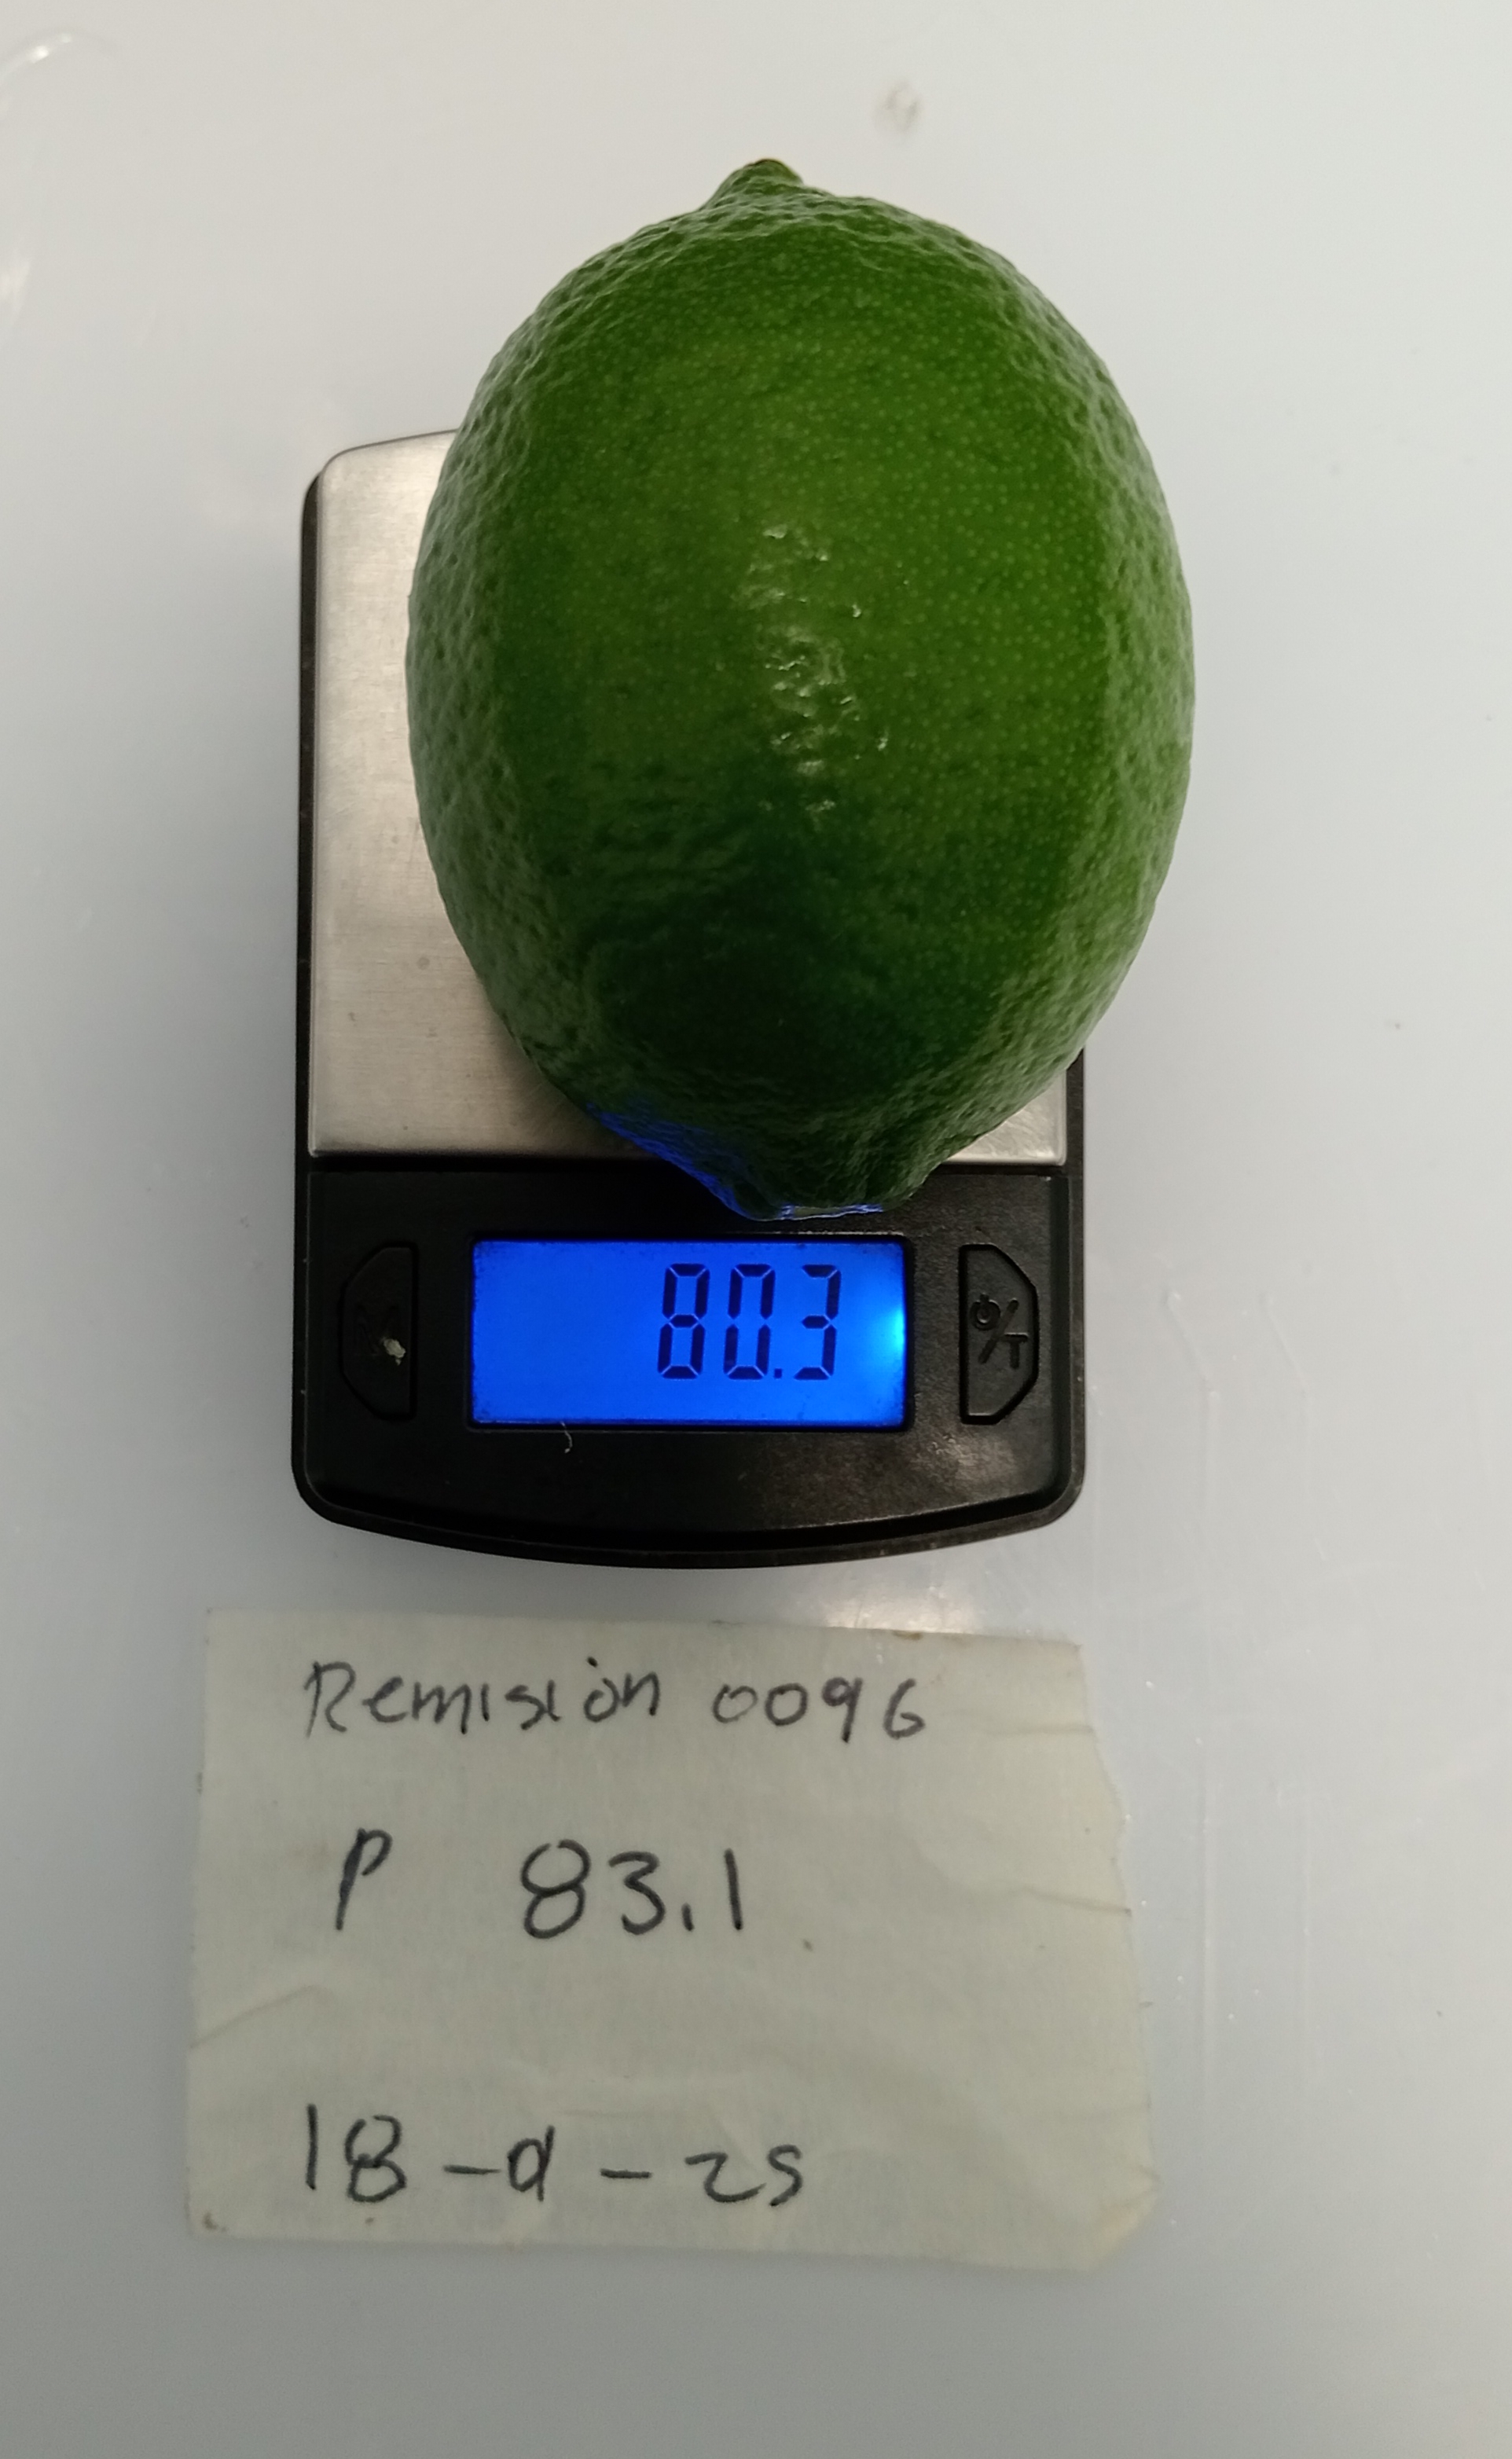 80.3
⏻/T
Remisión 0096
P 83.1
18-d-25